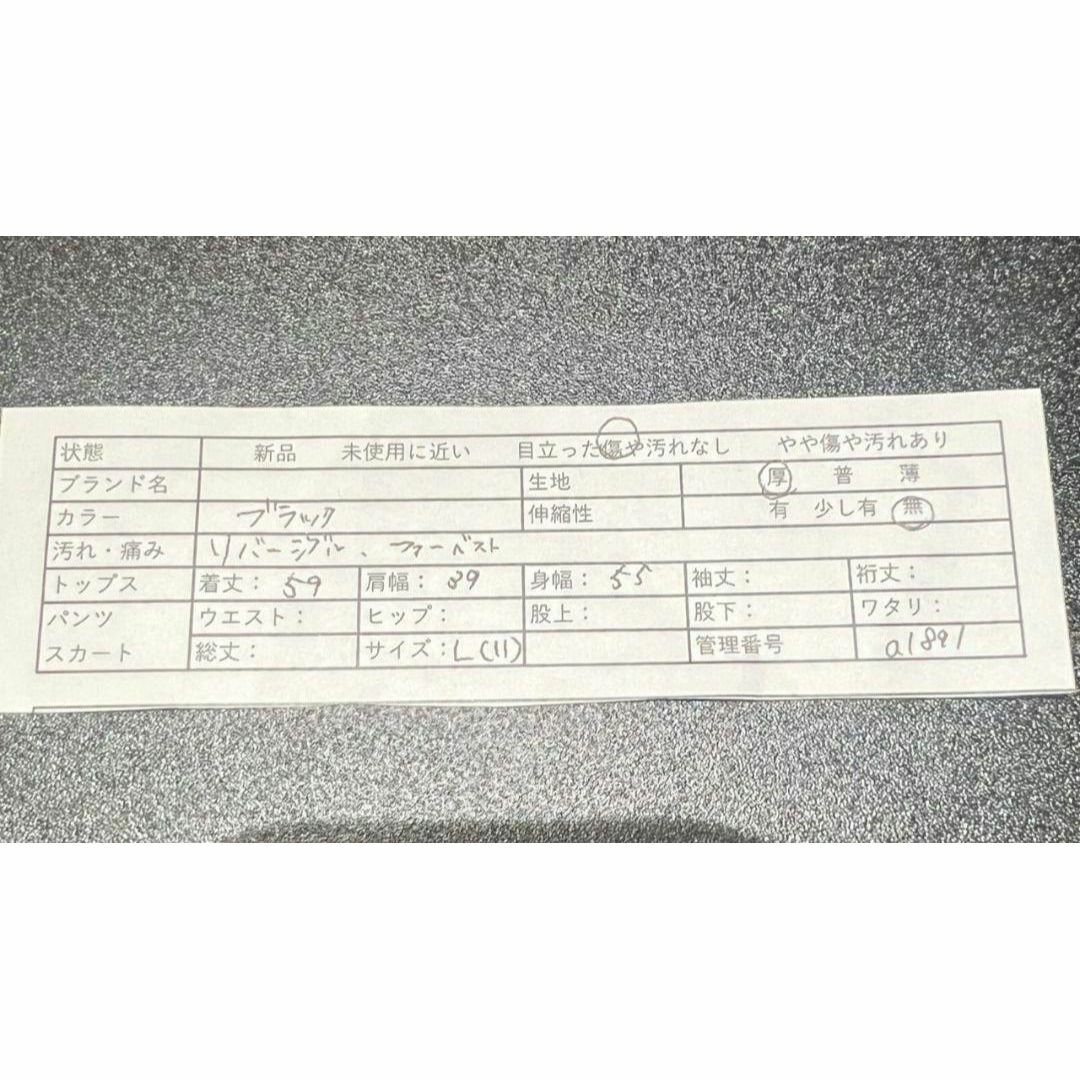 状態 新品 未使用に近い 目立った傷や汚れなし やや傷や汚れあり
ブランド名 生地 厚 普 薄
カラー ブラック 伸縮性 有 少し有 無
汚れ・痛み リバーシブル、ファーベスト
トップス 着丈：59 肩幅：39 身幅：55 袖丈： 裄丈：
パンツ ウエスト： ヒップ： 股上： 股下： ワタリ：
スカート 総丈： サイズ：L(11) 管理番号 a1891